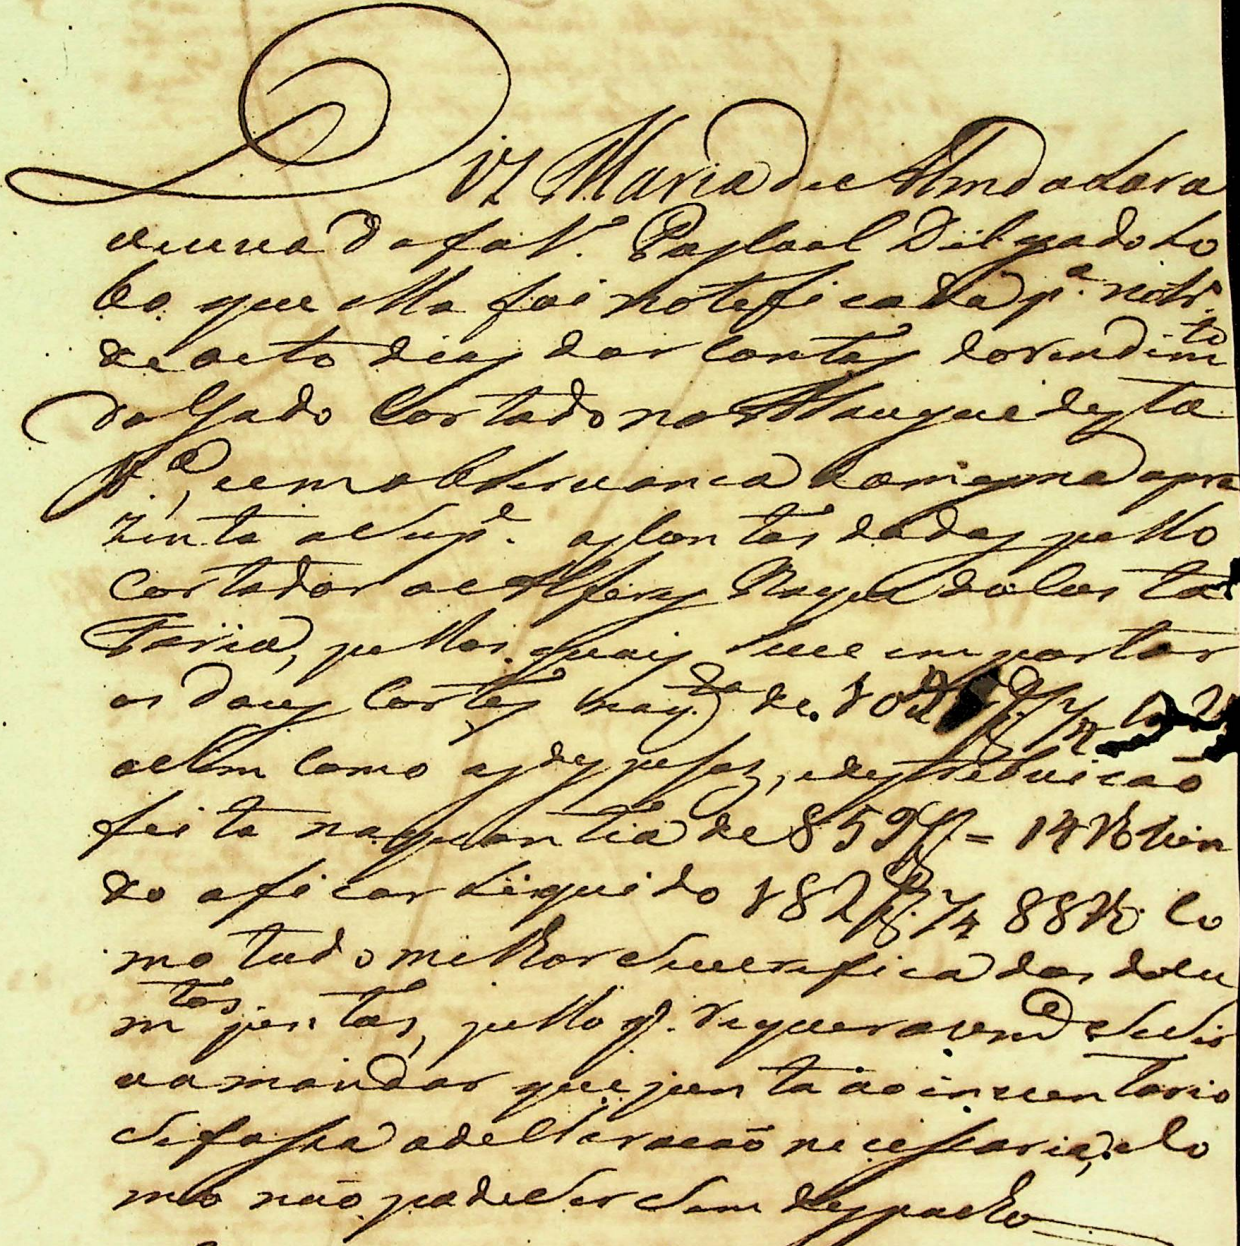 Diz Maria de Almdª Lara
viuva do fal.º Paschoal Delgado Lo
bo que ella foi noteficada p.ª no tr.º
de oito dias dar contas do rendim.to
do Gado Cortado no Assaugue desta
V.ª, e em observancia da mesma apre
zenta a Sup.e as Contas dadas pello
Cortador o Alferes Miguel da Costa
Faria, pellas quais se ve importar
os dous Cortes a
a Sim como as despesas, e destrebuicaõ
feita na quantia de 859 = 14 vin
do a ficar Liquido 182 88 Co
mo tudo melhor se verefica dos docu
m.tos juntos, pello q. requer a vm.ce Se Sir
va mandar que junta ao inventario
Se fassa a declaracaõ necessaria, e Co
mo não pode Ser Sem despacho